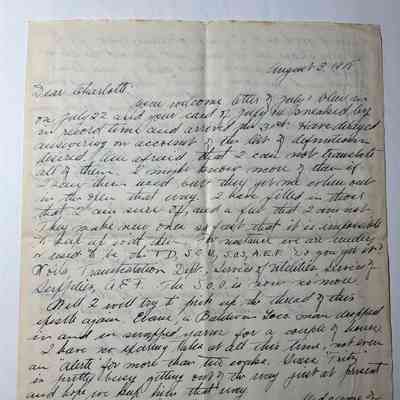 August 3, 1918
Dear Charlotte:
Your welcome letter of July blew in
on July 22 and your card of July 16 sneaked by
in record time and arrived the 30th. Have delayed
answering on account of the list of definitions
desired. Am afraid that I can not translate
all of them. I might know more of them if
I saw them used but they get me when out
in the open that way. I have filled in those
that I am sure of, and a few that I am not.
They make new ones so fast that it is impossible
to keep up with them. For instance we are under,
or used to be the T.D., S.O.U., S.O.S., A.E.F. Do you get it?
Transportation Dept. Service of Utilities Service of
Supplies, A.E.F. The S.O.U. is now no more.
Well I will try to pick up the thread of this
epistle again. Evans, a Baldwin Loco man dropped
in and we swapped yarns for a couple of hours.
I have no exciting tales at all this time, not even
an alerte for more than two weeks. Guess "Fritz"
is pretty busy getting out of the way just at present
and hope we keep him that way.